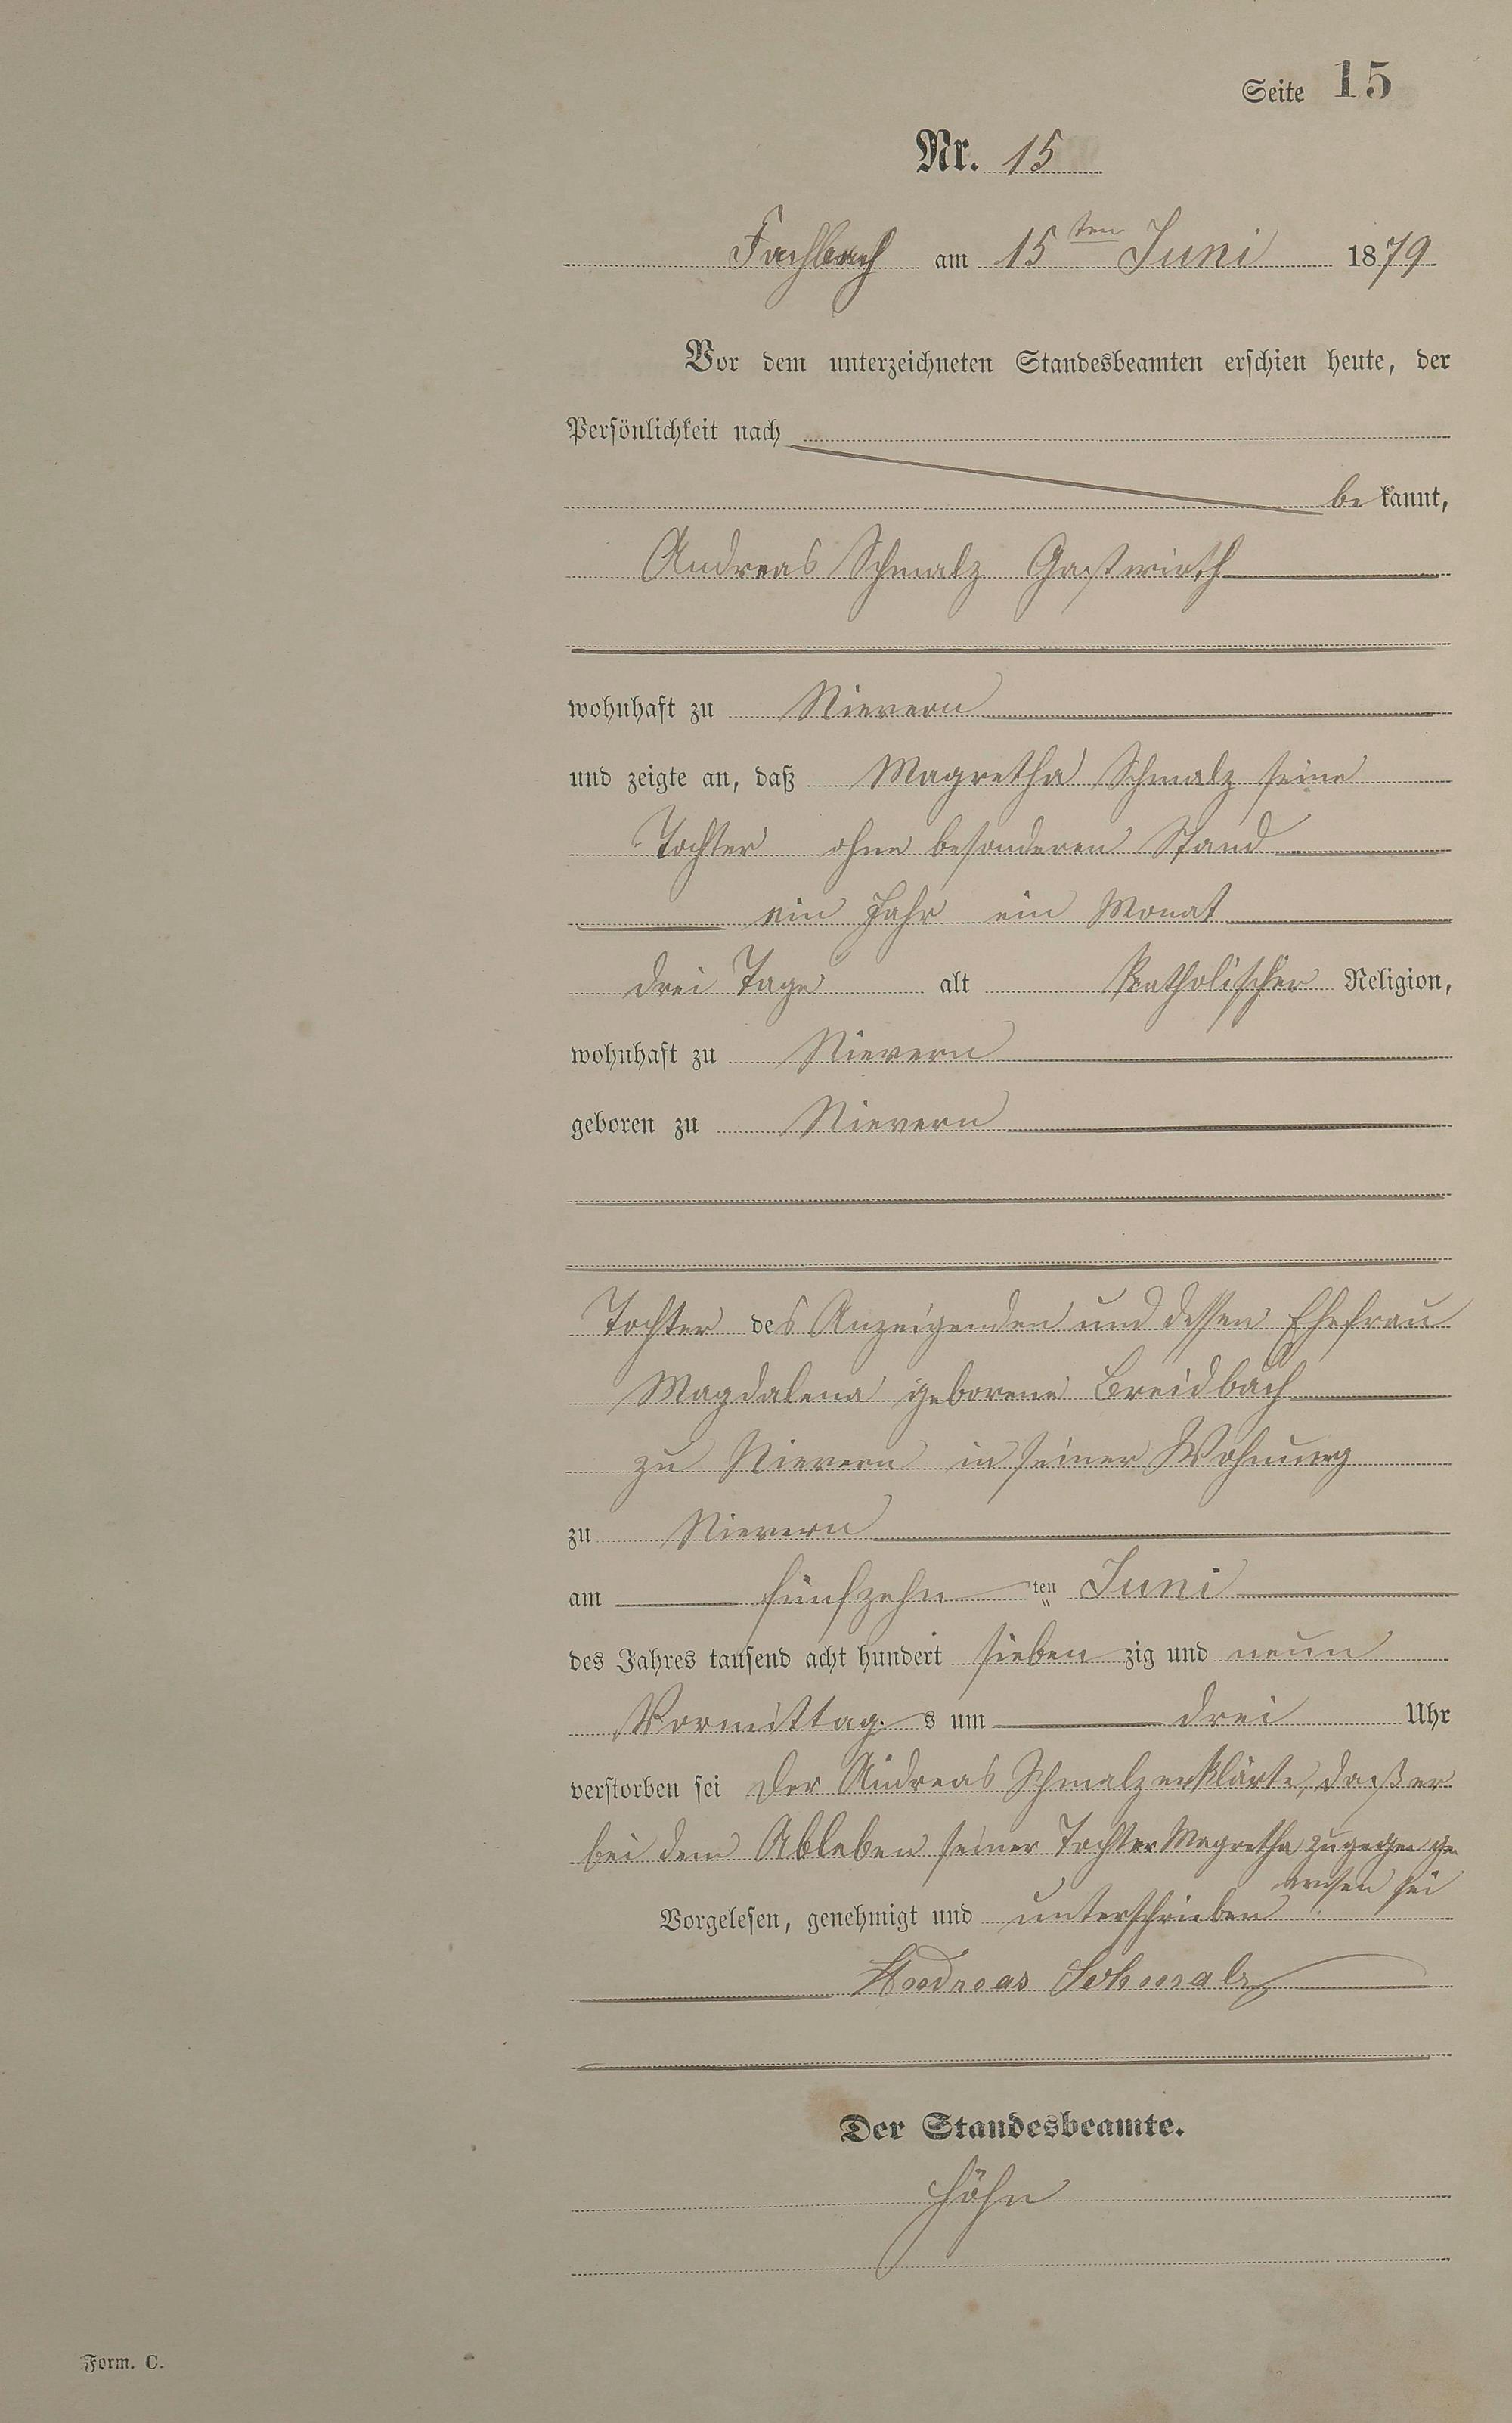 Seite 15
Nr. 15
Fachbach am 15ten Juni 1879
Vor dem unterzeichneten Standesbeamten erschien heute, der
Persönlichkeit nach
be kannt,
Andreas Schmalz Gastwirth
wohnhaft zu Nievern
und zeigte an, daß Magretha Schmalz seine
Tochter ohne besonderen Stand
ein Jahr ein Monat
drei Tage alt Katholischer Religion,
wohnhaft zu Nievern
geboren zu Nievern
Tochter des Anzeigenden und dessen Ehefrau
Magdalena geborene Breidbach
zu Nievern in seiner Wohnung
zu Nievern
am fünfzehn ten Juni
des Jahres tausend acht hundert sieben zig und neun
Vormittag s um drei Uhr
verstorben sei Der Andreas Schmalz erklärte, daß er
bei dem Ableben seiner Tochter Magretha zugegen ge
wesen sei
Vorgelesen, genehmigt und unterschrieben
Andreas Schmalz
Der Standesbeamte.
Höhn
Form. C.